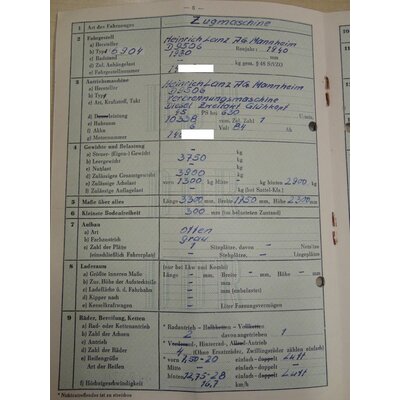 - 5 -
1 Art des Fahrzeuges Zugmaschine
2 Fahrgestell
a) Hersteller Heinrich Lanz AG Mannheim
b) Typ D 9506 Baujahr: 1950
c) Radstand 1730
d) Zul. Anhängelast kg gem. § 48 StVZO
e) Fahrgestellnummer
3 Antriebsmaschine
a) Hersteller Heinrich Lanz AG Mannheim
b) Typ D 9506
c) Art, Kraftstoff, Takt Verbrennungsmaschine
Diesel Zweitakt Glühkopf
d) Dauerleistung PS bei 630
e) Hubraum 10338 cm Zyl. Zahl 1 U/min
f) Akku 6 Volt 84 Ah
g) Motornummer
4 Gewichte und Belastung
a) Steuer- (Eigen-) Gewicht — kg
b) Leergewicht 3750 kg
c) Nutzlast — kg
d) Zulässiges Gesamtgewicht 3900 kg
e) Zulässige Achslast vorn 1300 kg Mitte — kg hinten 2900 kg
f) Zulässige Auflagelast — kg (bei Sattel-Kfz.)
5 Maße über alles Länge 3300 mm Breite 1750 mm Höhe 2300 mm
6 Kleinste Bodenfreiheit 300 mm (im belasteten Zustand)
7 Aufbau
a) Art offen
b) Farbanstrich grau
c) Zahl der Plätze 1 Sitzplätze, davon — Notsitze
(einschließlich Fahrerplatz) — Stehplätze, — Liegeplätze
8 Laderaum (nur bei Lkw und Kombi)
a) Größte inneren Maße Länge — mm, Breite — mm, Höhe — mm
b) Zus. Höhe der Aufsatzteile — mm
c) Ladefläche ü. d. Fahrbahn — mm (unbelastet)
d) Kipper nach —
e) Kesselkraftwagen — Liter Fassungsvermögen
9 Räder, Bereifung, Ketten * Radantrieb - Halbketten - Vollketten
a) Rad- oder Kettenantrieb
b) Zahl der Achsen 2 davon angetrieben 1
c) Antrieb * Vorderrad-, Hinterrad-, Allrad-Antrieb
d) Zahl der Räder 4 (Ohne Ersatzräder, Zwillingsräder zählen einfach)
e) Reifengröße * vorn -20 einfach - doppelt Luft
Art der Reifen Mitte einfach - doppelt
hinten 12,75-28 einfach - doppelt Luft
f) Höchstgeschwindigkeit 16,7 km/h
* Nichtzutreffendes ist zu streichen